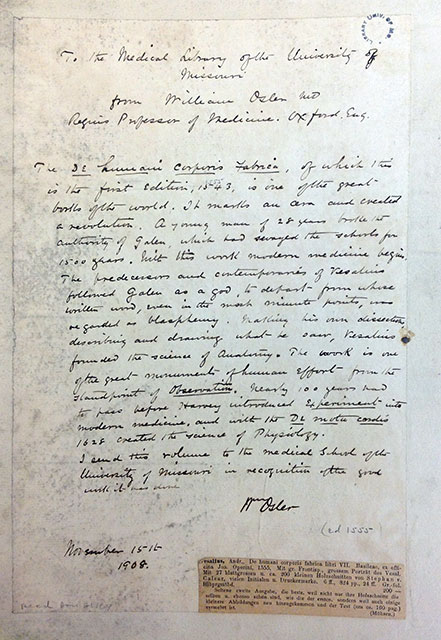 LIBRARY UNIV. OF MO.
To the Medical Library of the University of
Missouri
from William Osler MD
Regius Professor of Medicine. Oxford, Eng.
The De humani corporis Fabrica, of which this
is the first Edition, 1543, is one of the great
books of the world. It marks an aera and created
a revolution. A young man of 28 years broke the
authority of Galen, which had swayed the schools for
1500 years. With this work modern medicine begins.
The predecessors and contemporaries of Vesalius
followed Galen as a god, to depart from whose
written word, even in the most minute points, was
regarded as blasphemy. Making his own dissections
describing and drawing what he saw, Vesalius
founded the science of Anatomy. The work is one
of the great monuments of human Effort from the
standpoint of Observation. Nearly 100 years had
to pass before Harvey introduced Experiment into
modern medicine, and with the De motu cordis
1628 created the science of Physiology.
I send this volume to the medical School of the
University of Missouri in recognition of the good
work it has done
Wm Osler
(ed 1555
November 15th
1908.
esalius, Andr., De humani corporis fabrica libri VII. Basileae, ex offi-
cina Joa. Oporini, 1555. Mit gr. Frontisp., grossem Porträt des Vesal,
Mit 27 blattgrossen u. ca. 200 kleinen Holzschnitten von Stephan v.
Calcar, vielen Initialen u. Druckermarke. 6 ff., 824 pp., 24 ff. Gr.-fol.
200.—
Seltene zweite Ausgabe, die